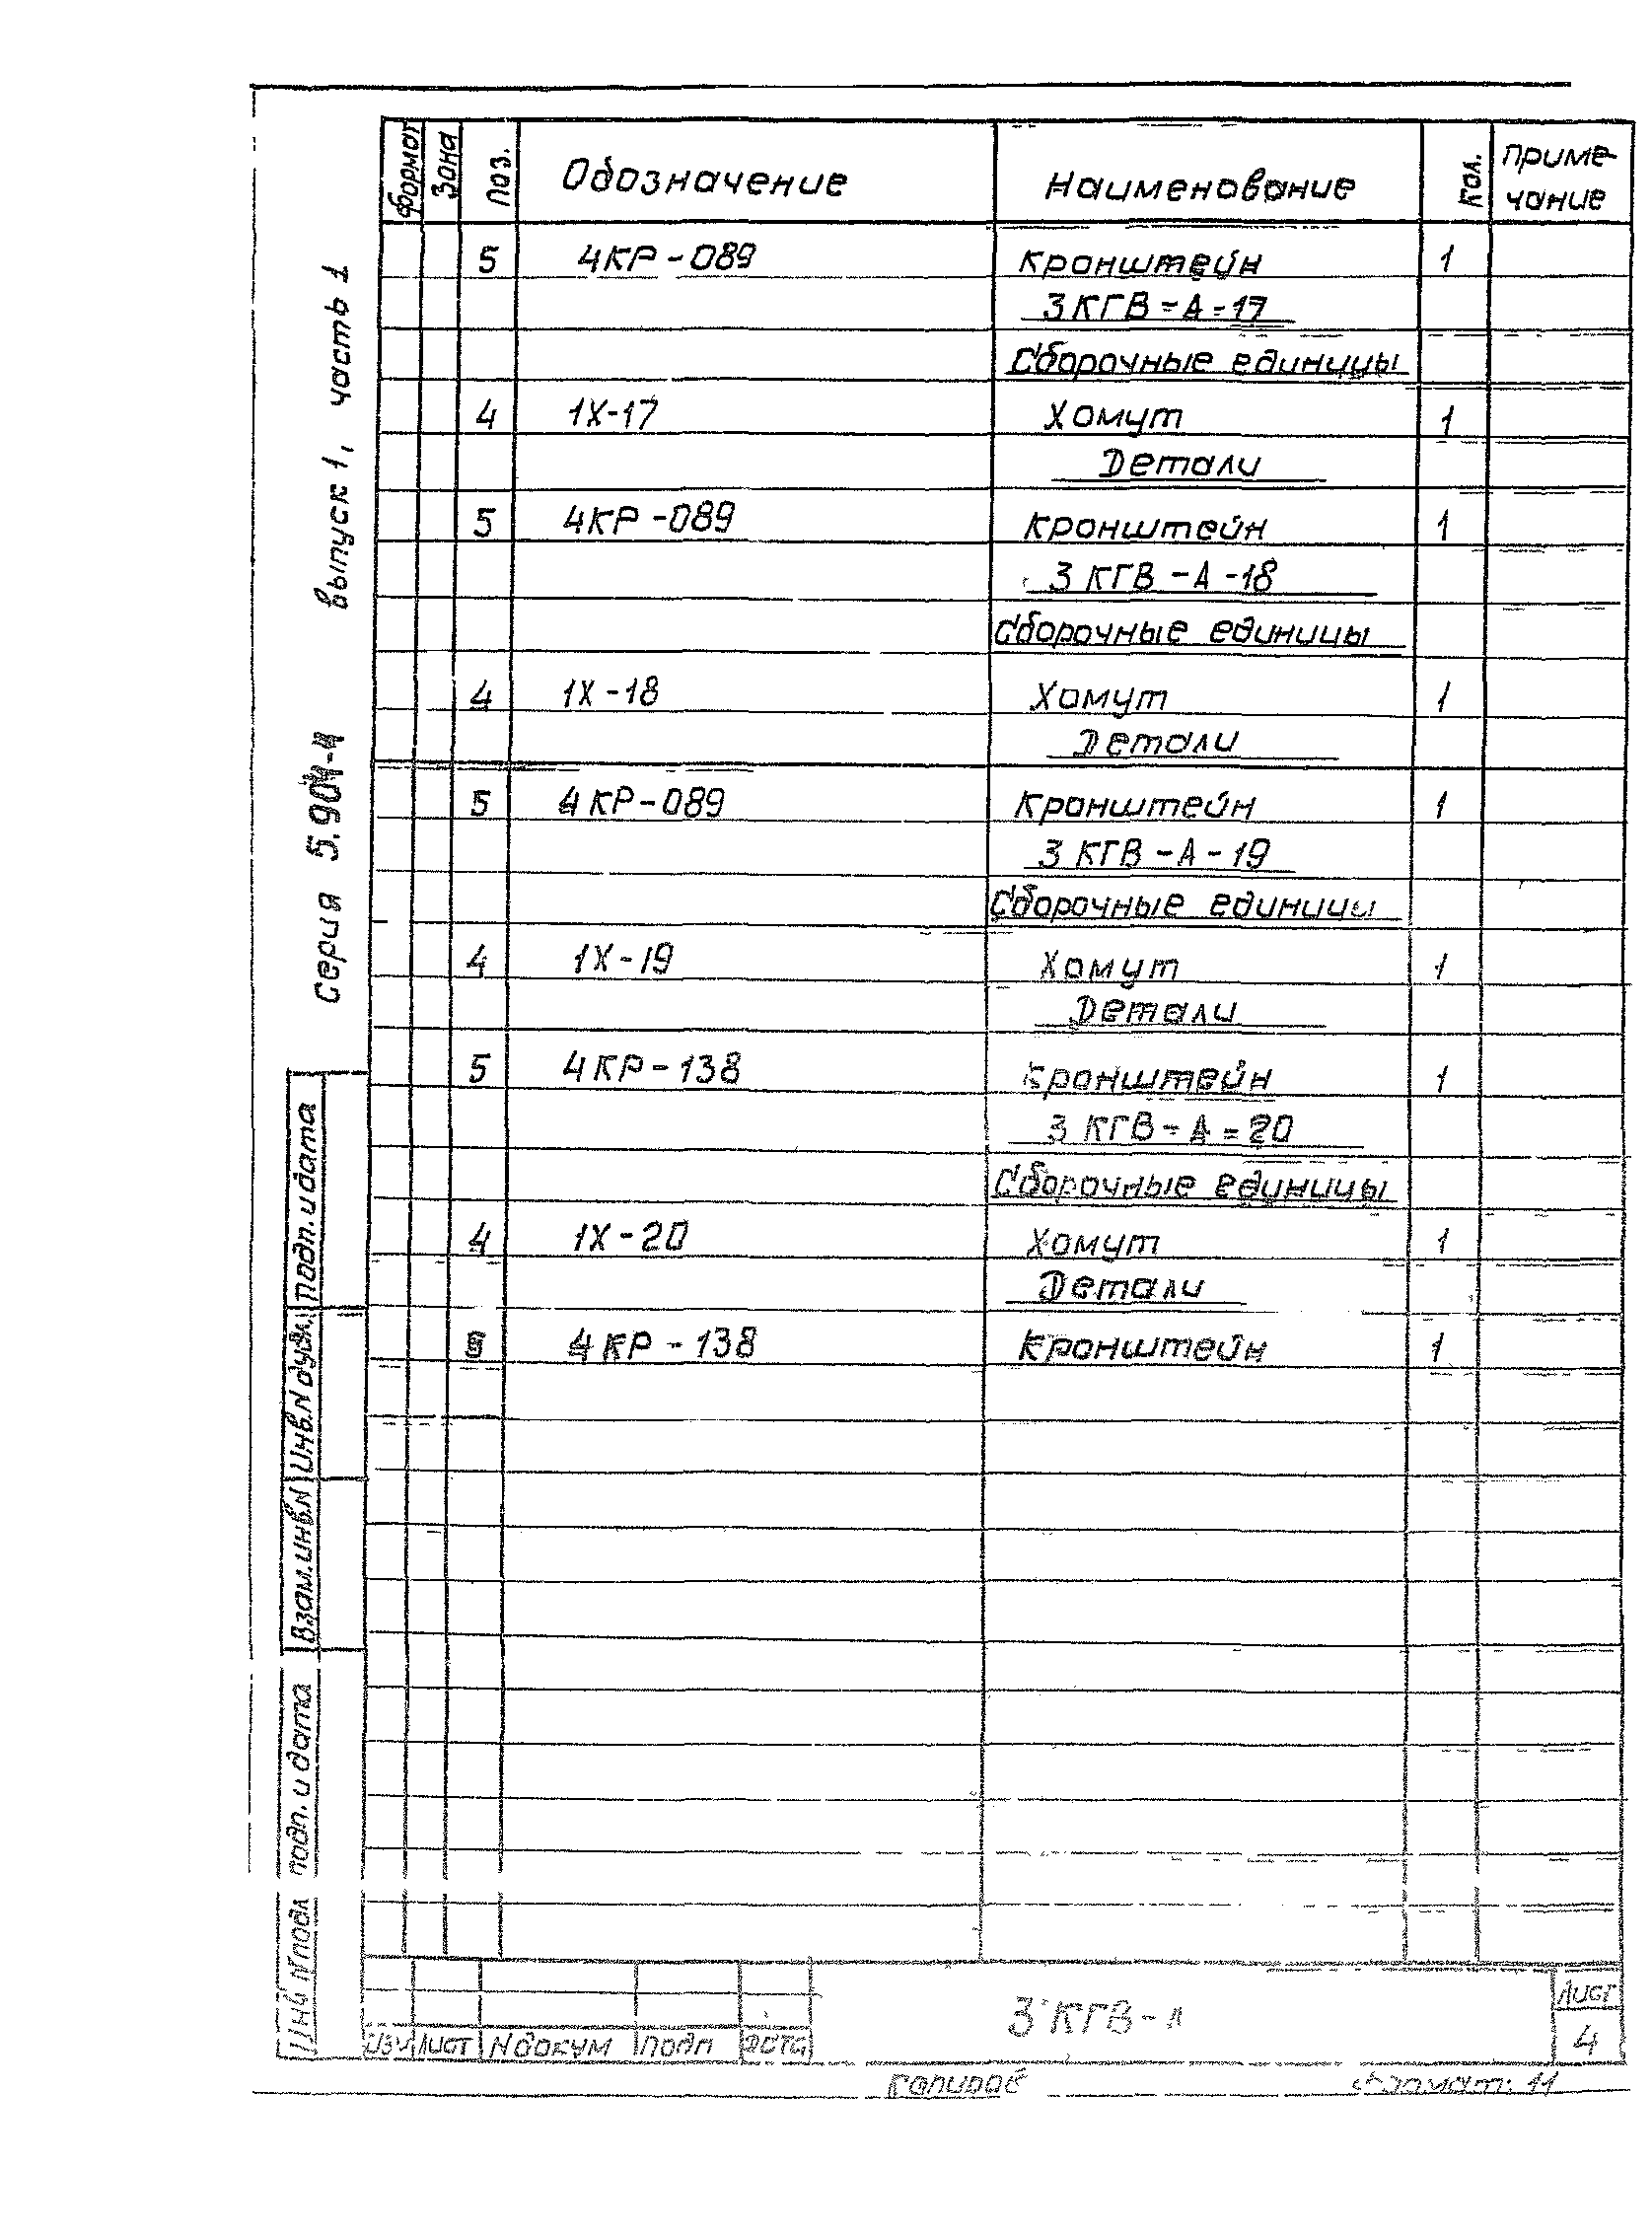 Формат Зона Поз. Обозначение Наименование Кол. Приме-
чание
5 4КР-089 Кронштейн 1
3 КГВ-А-17
Сборочные единицы
4 1Х-17 Хомут 1
Детали
5 4КР-089 Кронштейн 1
3 КГВ-А-18
Сборочные единицы
4 1Х-18 Хомут 1
Детали
5 4КР-089 Кронштейн 1
3 КГВ-А-19
Сборочные единицы
4 1Х-19 Хомут 1
Детали
5 4КР-138 Кронштейн 1
3 КГВ-А-20
Сборочные единицы
4 1Х-20 Хомут 1
Детали
5 4КР-138 Кронштейн 1
Серия 5.904-4 выпуск 1, часть 1
Подп. и дата
Инв.N дубл.
Взам.инв.N
подп. и дата
Инв N подл
Изм Лист N докум подп дата
3 КГВ-А
Лист
4
Копировал
Формат: 11